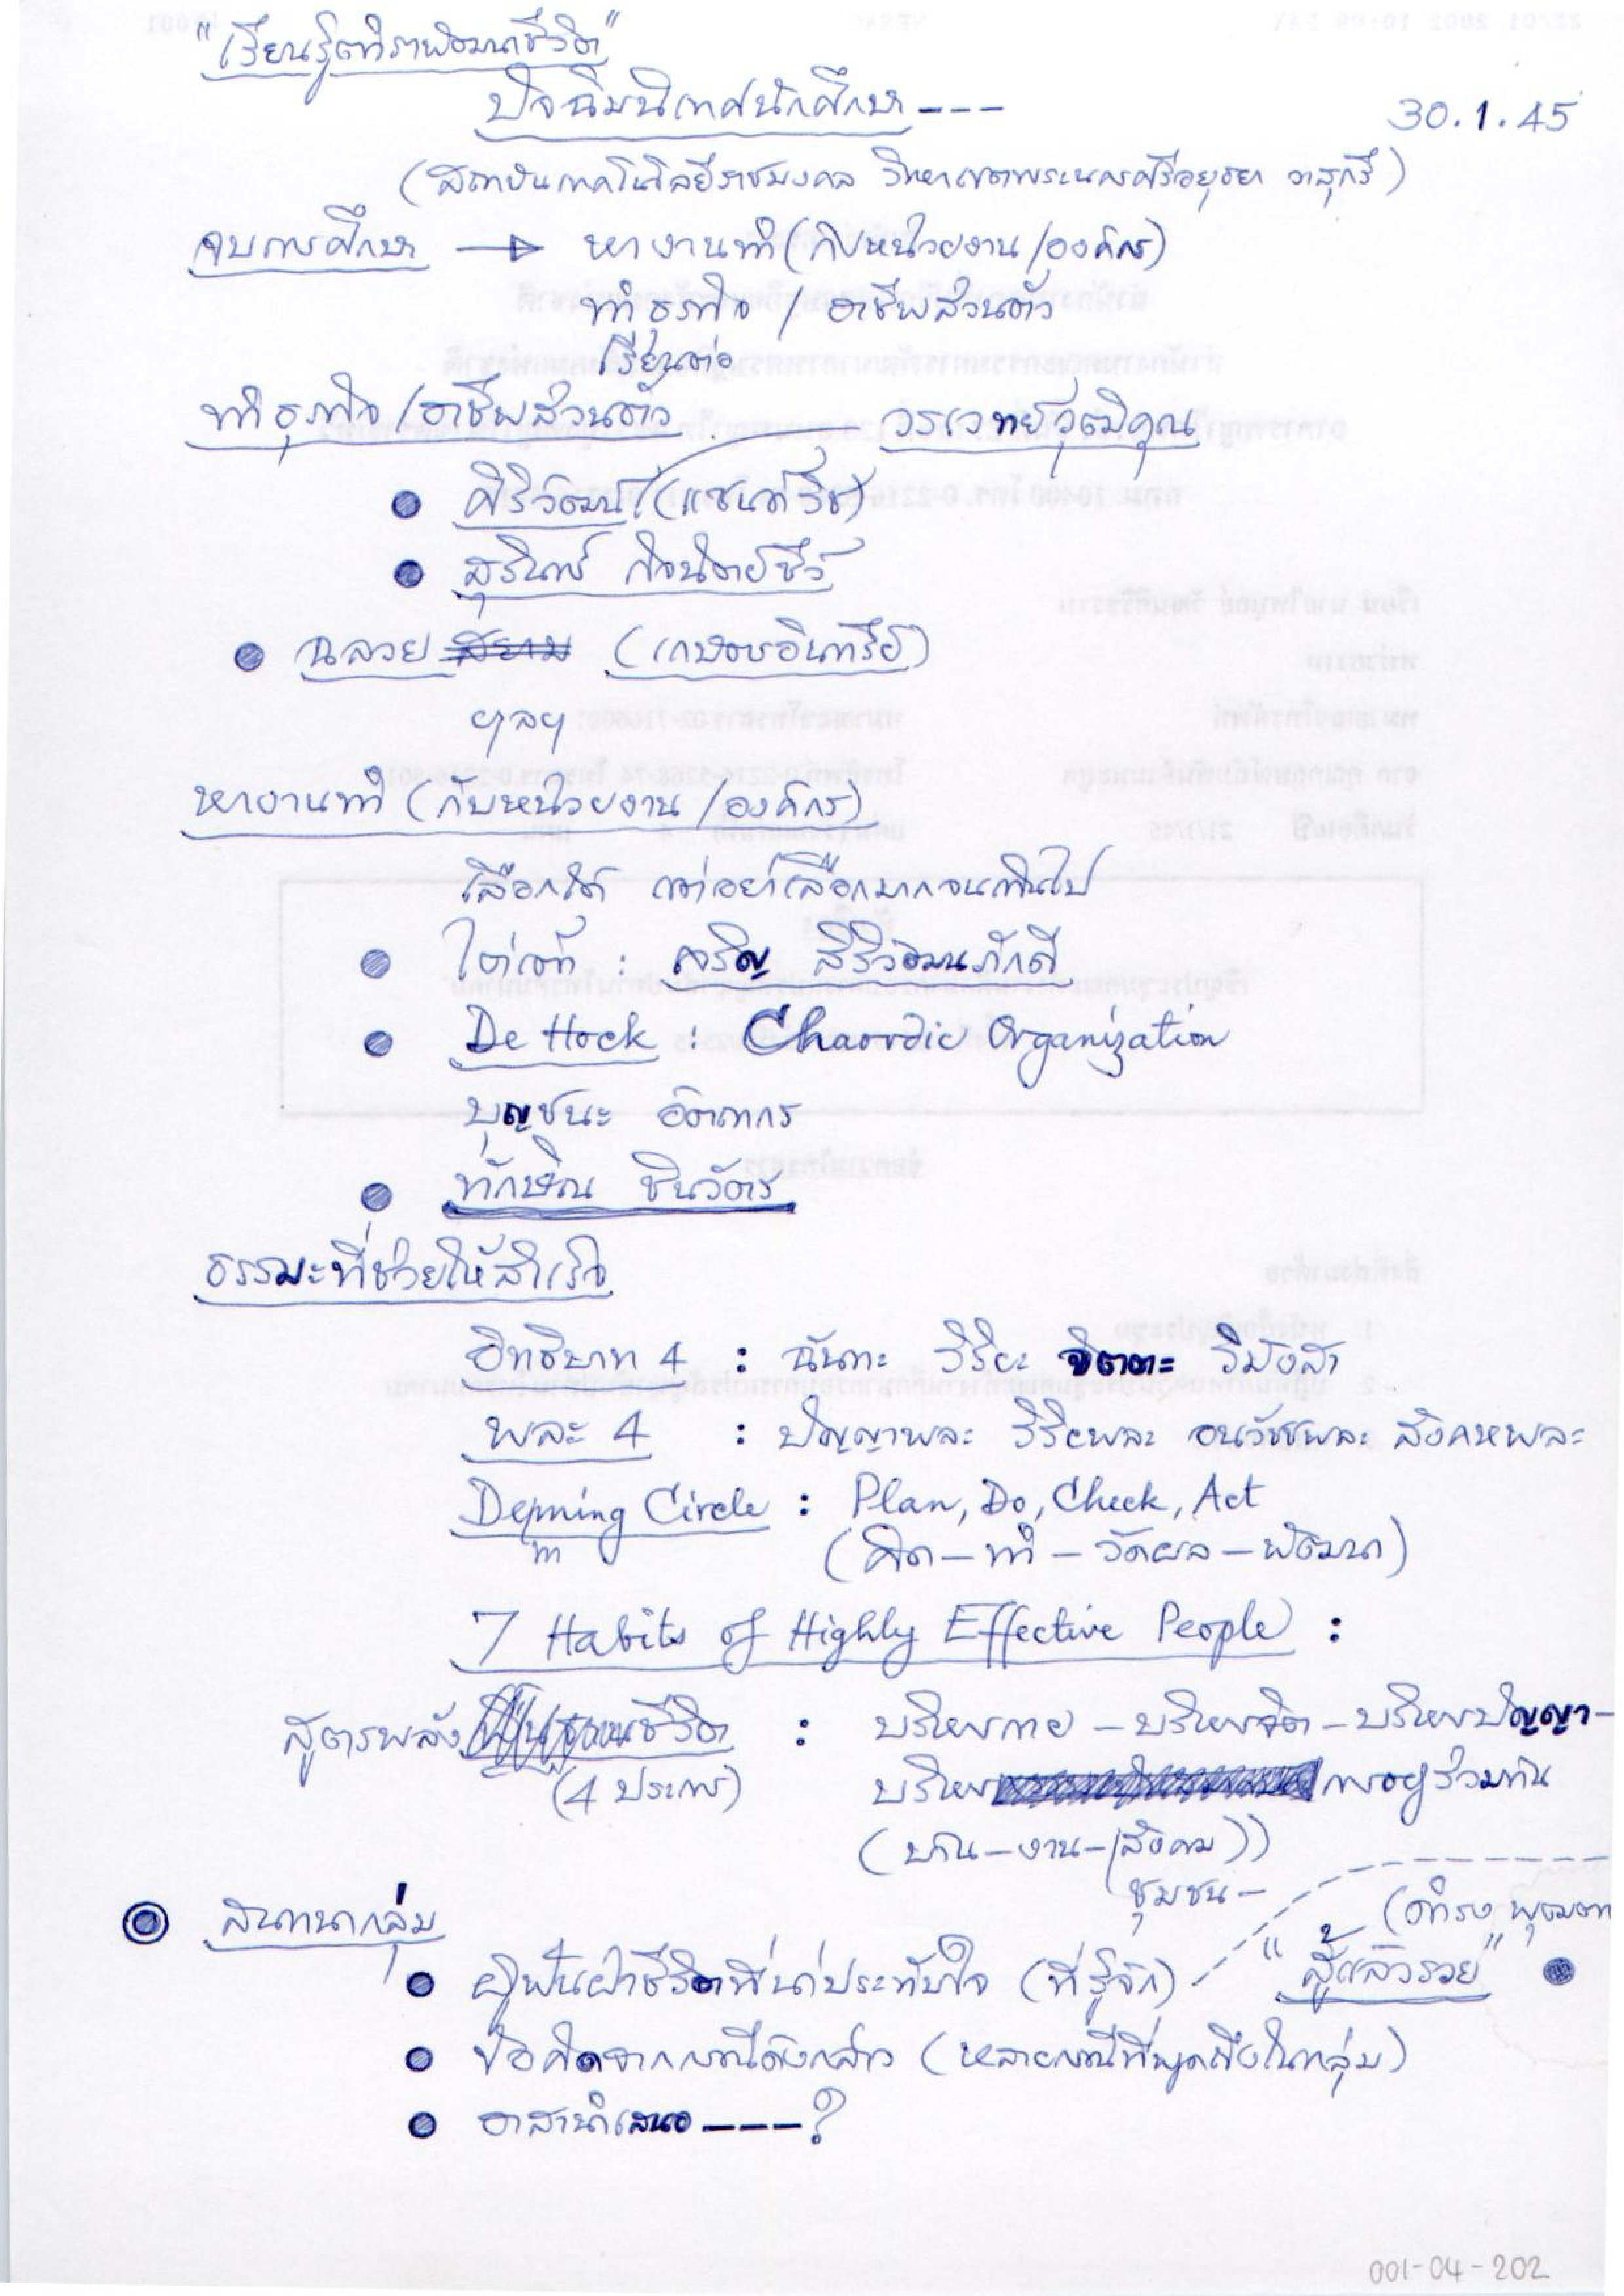 "เรียนรู้ตำราพัฒนาชีวิต"
ปัจฉิมนิเทศนักศึกษา ---
30.1.45
(สถาบันเทคโนโลยีราชมงคล วิทยาเขตพระนครศรีอยุธยา วาสุกรี)
จบการศึกษา → หางานทำ (กับหน่วยงาน/องค์กร)
ทำธุรกิจ / อาชีพส่วนตัว
เรียนต่อ
ทำธุรกิจ/อาชีพส่วนตัว วรเวทย์วุฒิคุณ
● ศิริวัฒน์ (แซนด์วิช)
● สุรินทร์ กิจนิตย์ชีว์
● ฉลวย (เกษตรอินทรีย์)
ฯลฯ
หางานทำ (กับหน่วยงาน/องค์กร)
เลือกได้ แต่อย่าเลือกมากจนเกินไป
● ไต่เต้า : เจริญ สิริวัฒนภักดี
● De Hock : Chaordic Organization
บุญชนะ อัตถากร
● ทักษิณ ชินวัตร
ธรรมะที่ช่วยให้สำเร็จ
อิทธิบาท 4 : ฉันทะ วิริยะ จิตตะ วิมังสา
พละ 4 : ปัญญาพละ วิริยพละ อนวัชชพละ สังคหพละ
Deming Circle : Plan, Do, Check, Act
m
(คิด – ทำ – วัดผล – พัฒนา)
7 Habits of Highly Effective People :
สูตรพลังชีวิต : บริหารกาย – บริหารจิต – บริหารปัญญา –
(4 ประการ) บริหารการอยู่ร่วมกัน
(บ้าน – งาน – (สังคม))
ชุมชน –
◉ สนทนากลุ่ม
(ดำรง
● ผู้ฟันฝ่าชีวิตที่น่าประทับใจ (ที่รู้จัก) "สู้แล้วรวย" ●
● ข้อคิดจากกรณีดังกล่าว (หลายกรณีที่พูดถึงในกลุ่ม)
● อาสานำเสนอ ----?
001-04-202